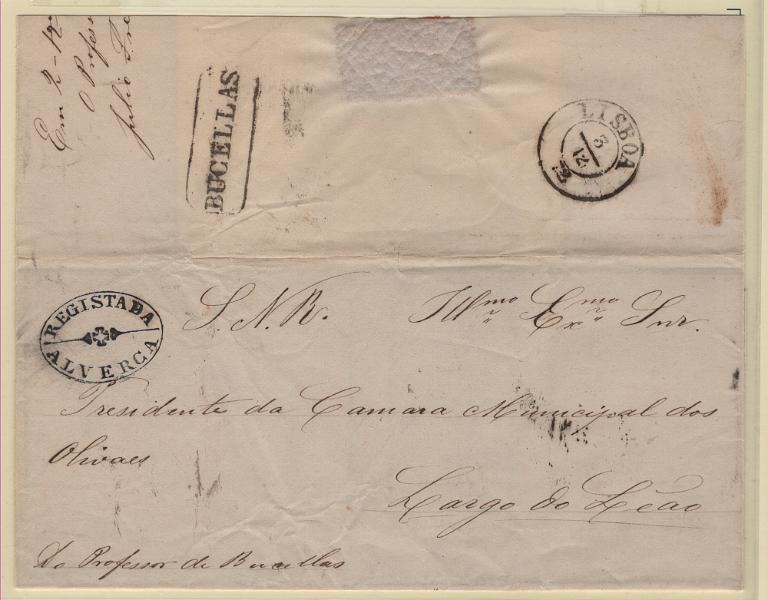 Em 2-12
O Profess
Julio
BUCELLAS
LISBOA
3
12
72
REGISTADA
ALVERCA
S. N. R.
Illmo Exmo Snr.
Presidente da Camara Municipal dos
Olivaes
Largo do Leão
Do Professor de Bucellas